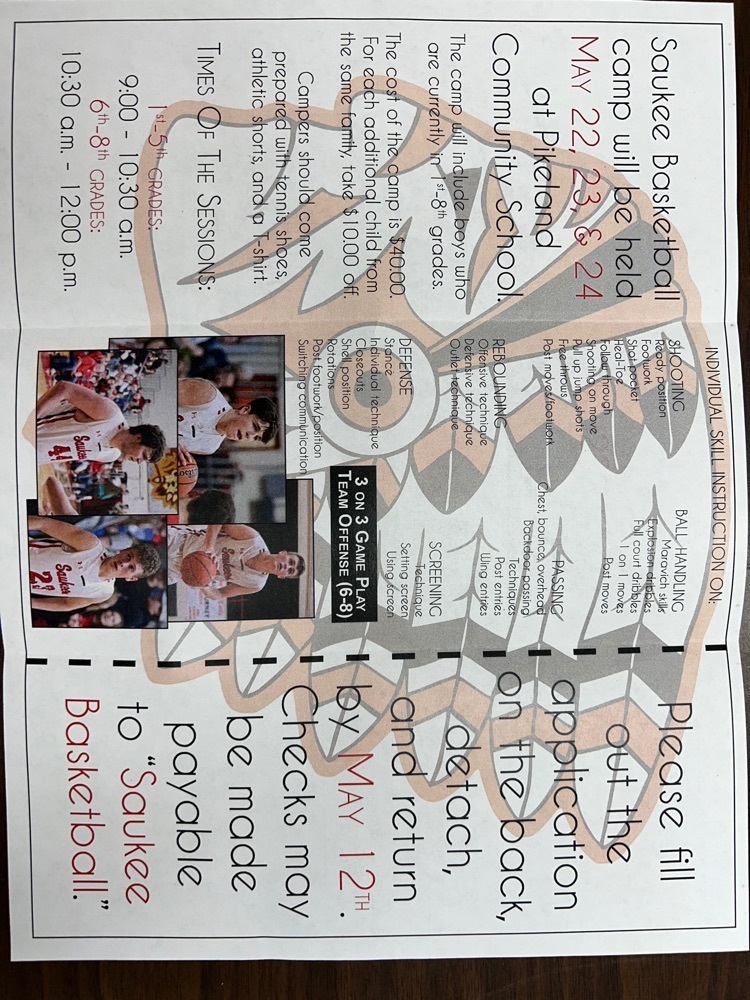 Saukee Basketball
camp will be held
MAY 22, 23, & 24
at Pikeland
Community School.
The camp will include boys who
are currently in 1st-8th grades.
The cost of the camp is $40.00.
For each additional child from
the same family, take $10.00 off.
Campers should come
prepared with tennis shoes,
athletic shorts, and a T-shirt.
TIMES OF THE SESSIONS:
1st-5th GRADES:
9:00 - 10:30 a.m.
6th-8th GRADES:
10:30 a.m. - 12:00 p.m.
INDIVIDUAL SKILL INSTRUCTION ON:
SHOOTING
Ready position
Footwork
Shot pocket
Heal-Toe
Follow through
Shooting on move
Pull up jump shots
Free throws
Post moves/footwork
REBOUNDING
Offensive technique
Defensive technique
Outlet technique
DEFENSE
Stance
Individual technique
Closeouts
Shell position
Rotations
Post footwork/position
Switching communication
BALL HANDLING
Maravich skills
Explosion dribbles
Full court dribbles
1 on 1 moves
Post moves
PASSING
Chest, bounce, overhead
Backdoor passing
Techniques
Post entries
Wing entries
SCREENING
Technique
Setting screen
Using screen
3 ON 3 GAME PLAY
TEAM OFFENSE (6-8)
Saukees
4
Saukees
Saukees
2
Please fill
out the
application
on the back,
detach,
and return
by MAY 12TH.
Checks may
be made
payable
to "Saukee
Basketball."